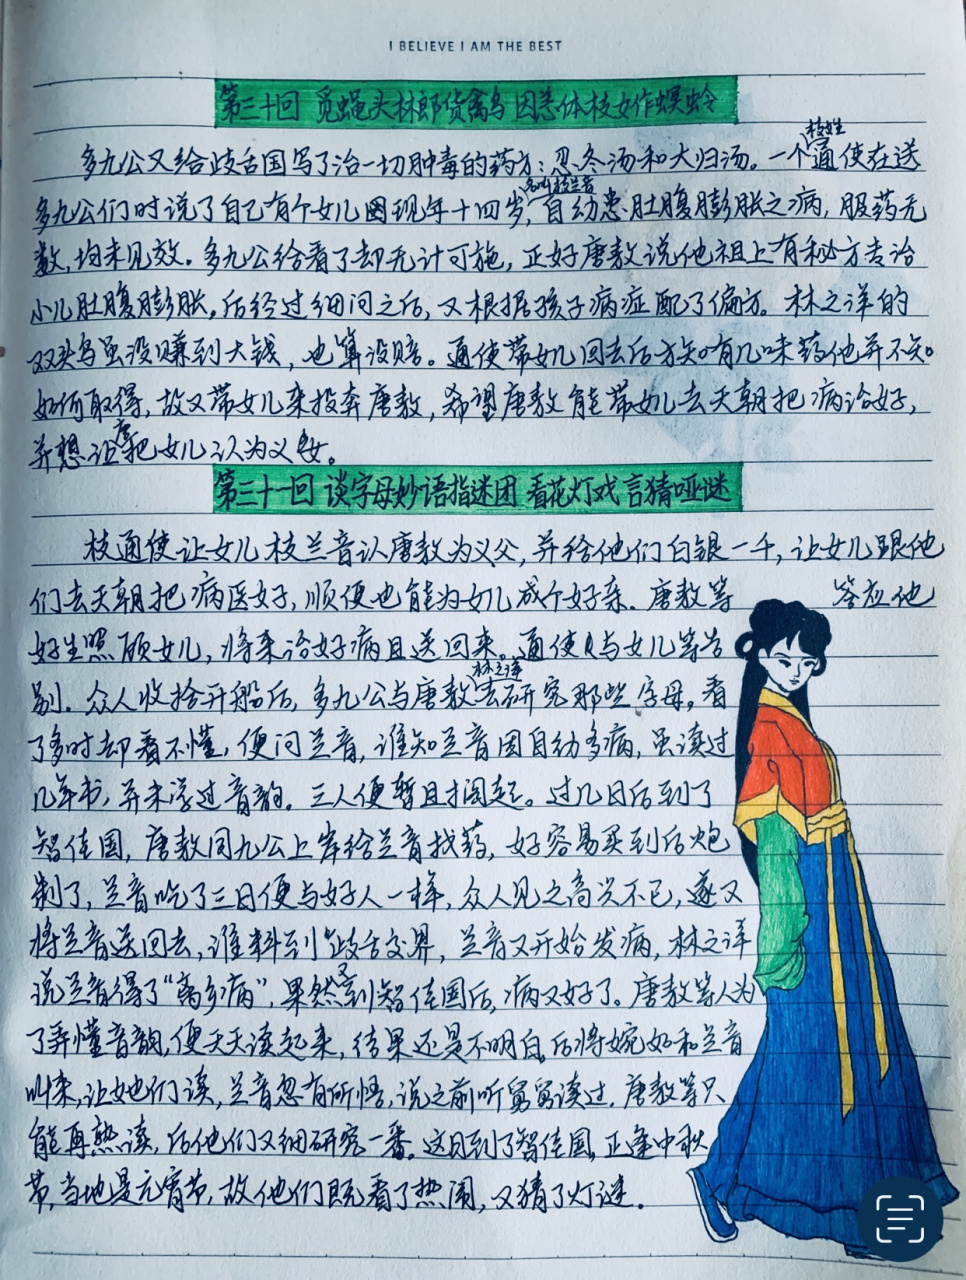 I BELIEVE I AM THE BEST
第三十回 觅蝇头林郎货禽鸟 因恙体枝女作螟蛉
多九公又给歧舌国写了治一切肿毒的药方：忍冬汤和大归汤。一个枝姓通使在送
多九公们时说了自己有个女儿现年十四岁，名叫枝兰音，自幼患肚腹膨胀之病，服药无
数，均未见效。多九公给看了却无计可施，正好唐敖说他祖上有秘方专治
小儿肚腹膨胀，后经过细问之后，又根据孩子病症配了偏方。林之洋的
双头鸟虽没赚到大钱，也算没赔。通使带女儿回去后方知有几味药他并不知
如何取得，故又带女儿来投奔唐敖，希望唐敖能带女儿去天朝把病治好，
并想让唐把女儿认为义女。
第三十一回 谈字母妙语指迷团 看花灯戏言猜哑谜
枝通使让女儿枝兰音认唐敖为义父，并给他们白银一千，让女儿跟他
们去天朝把病医好，顺便也能为女儿成个好亲。唐敖等 答应他
好生照顾女儿，将来治好病且送回来。通使与女儿等告
别。众人收拾开船后，多九公与唐敖林之洋去研究那些字母，看
了多时却看不懂，便问兰音，谁知兰音因自幼多病，虽读过
几年书，并未学过音韵。三人便暂且搁起。过几日后到了
智佳国，唐敖同九公上岸给兰音找药，好容易买到后炮
制了，兰音吃了三日便与好人一样，众人见之高兴不已，遂又
将兰音送回去，谁料到歧舌交界，兰音又开始发病，林之洋
说兰音得了“离乡病”，果然又到智佳国后，病又好了。唐敖等人为
了弄懂音韵，便天天读起来，结果还是不明白，后将婉如和兰音
叫来，让她们读，兰音忽有所悟，说之前听舅舅读过，唐敖等只
能再熟读，后他们又细研究一番。这日到了智佳国，正逢中秋
节，当地是元宵节，故他们既看了热闹，又猜了灯谜。